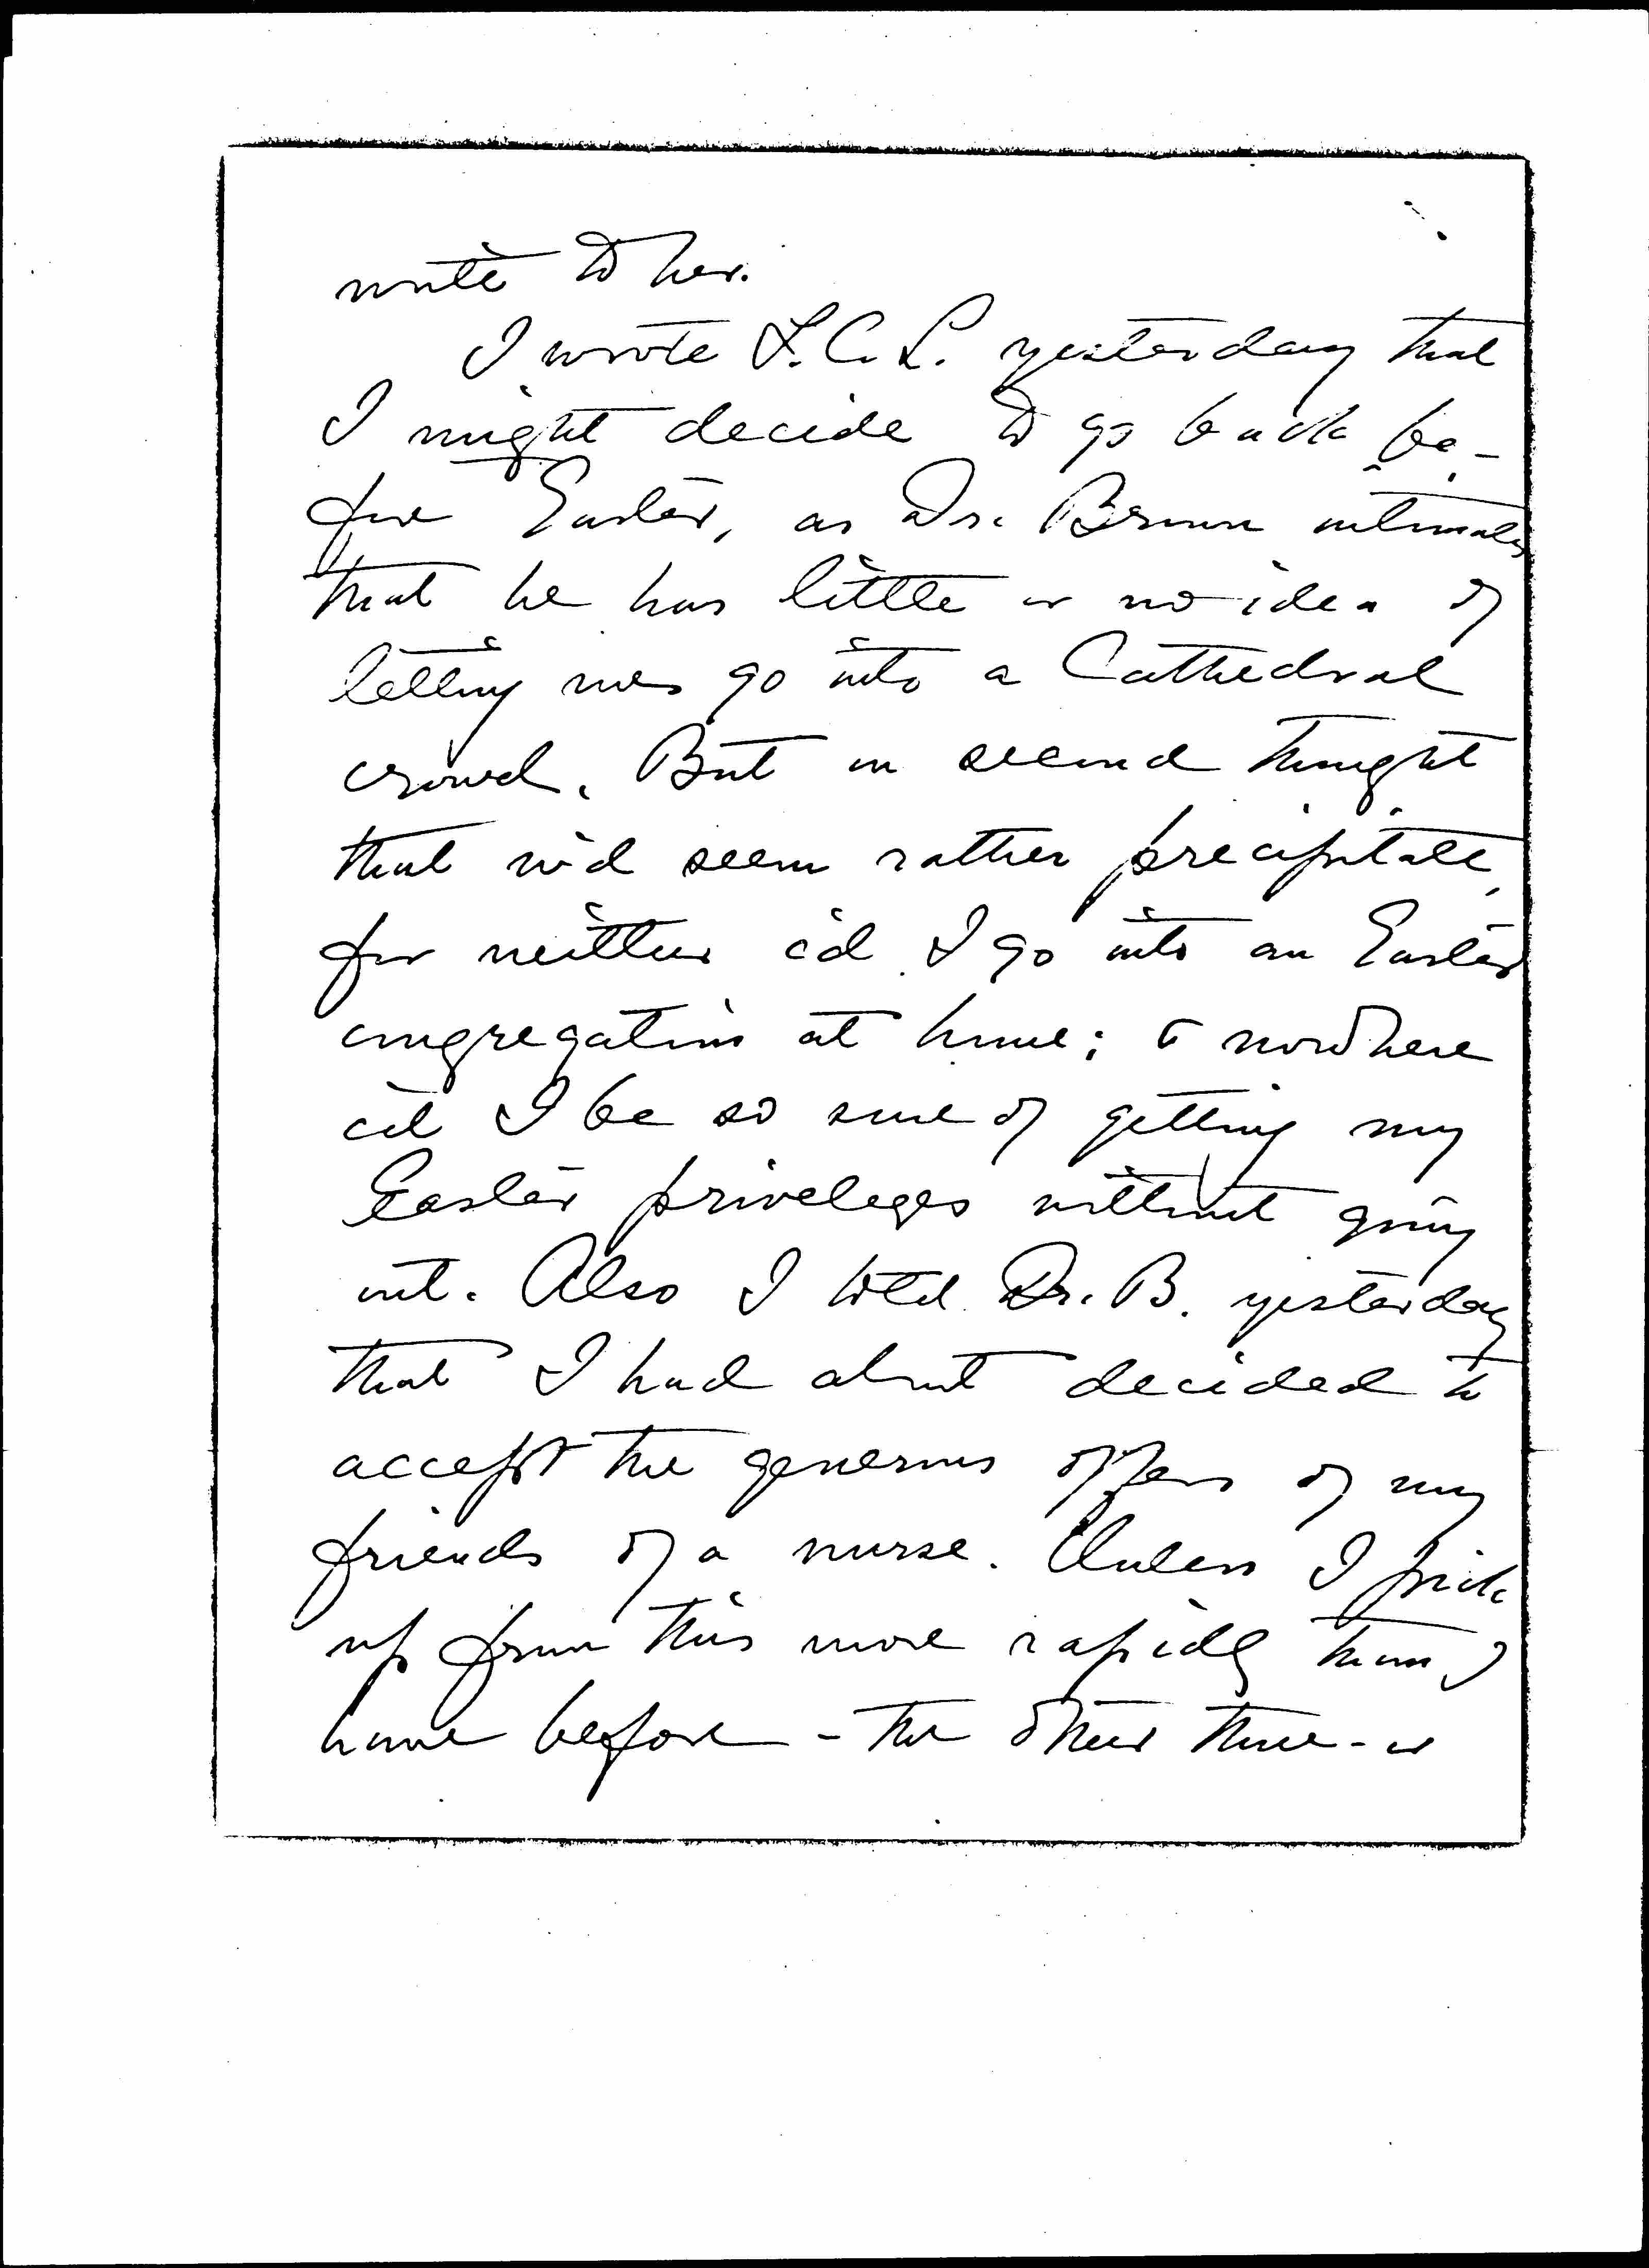 write to her.
I wrote L. C. L. yesterday that
I might decide to go back be-
fore Easter, as Dr. Brown intimates
that he has little or no idea of
letting me go into a Cathedral
crowd. But on second thought
that w'd seem rather precipitate,
for neither c'd I go into an Easter
congregation at home; & nowhere
c'd I be so sure of getting my
Easter priveleges without going
out. Also I told Dr. B. yesterday
that I had about decided to
accept the generous offers of my
friends of a nurse. Unless I pick
up from this more rapidly than I
have before - the other three - or